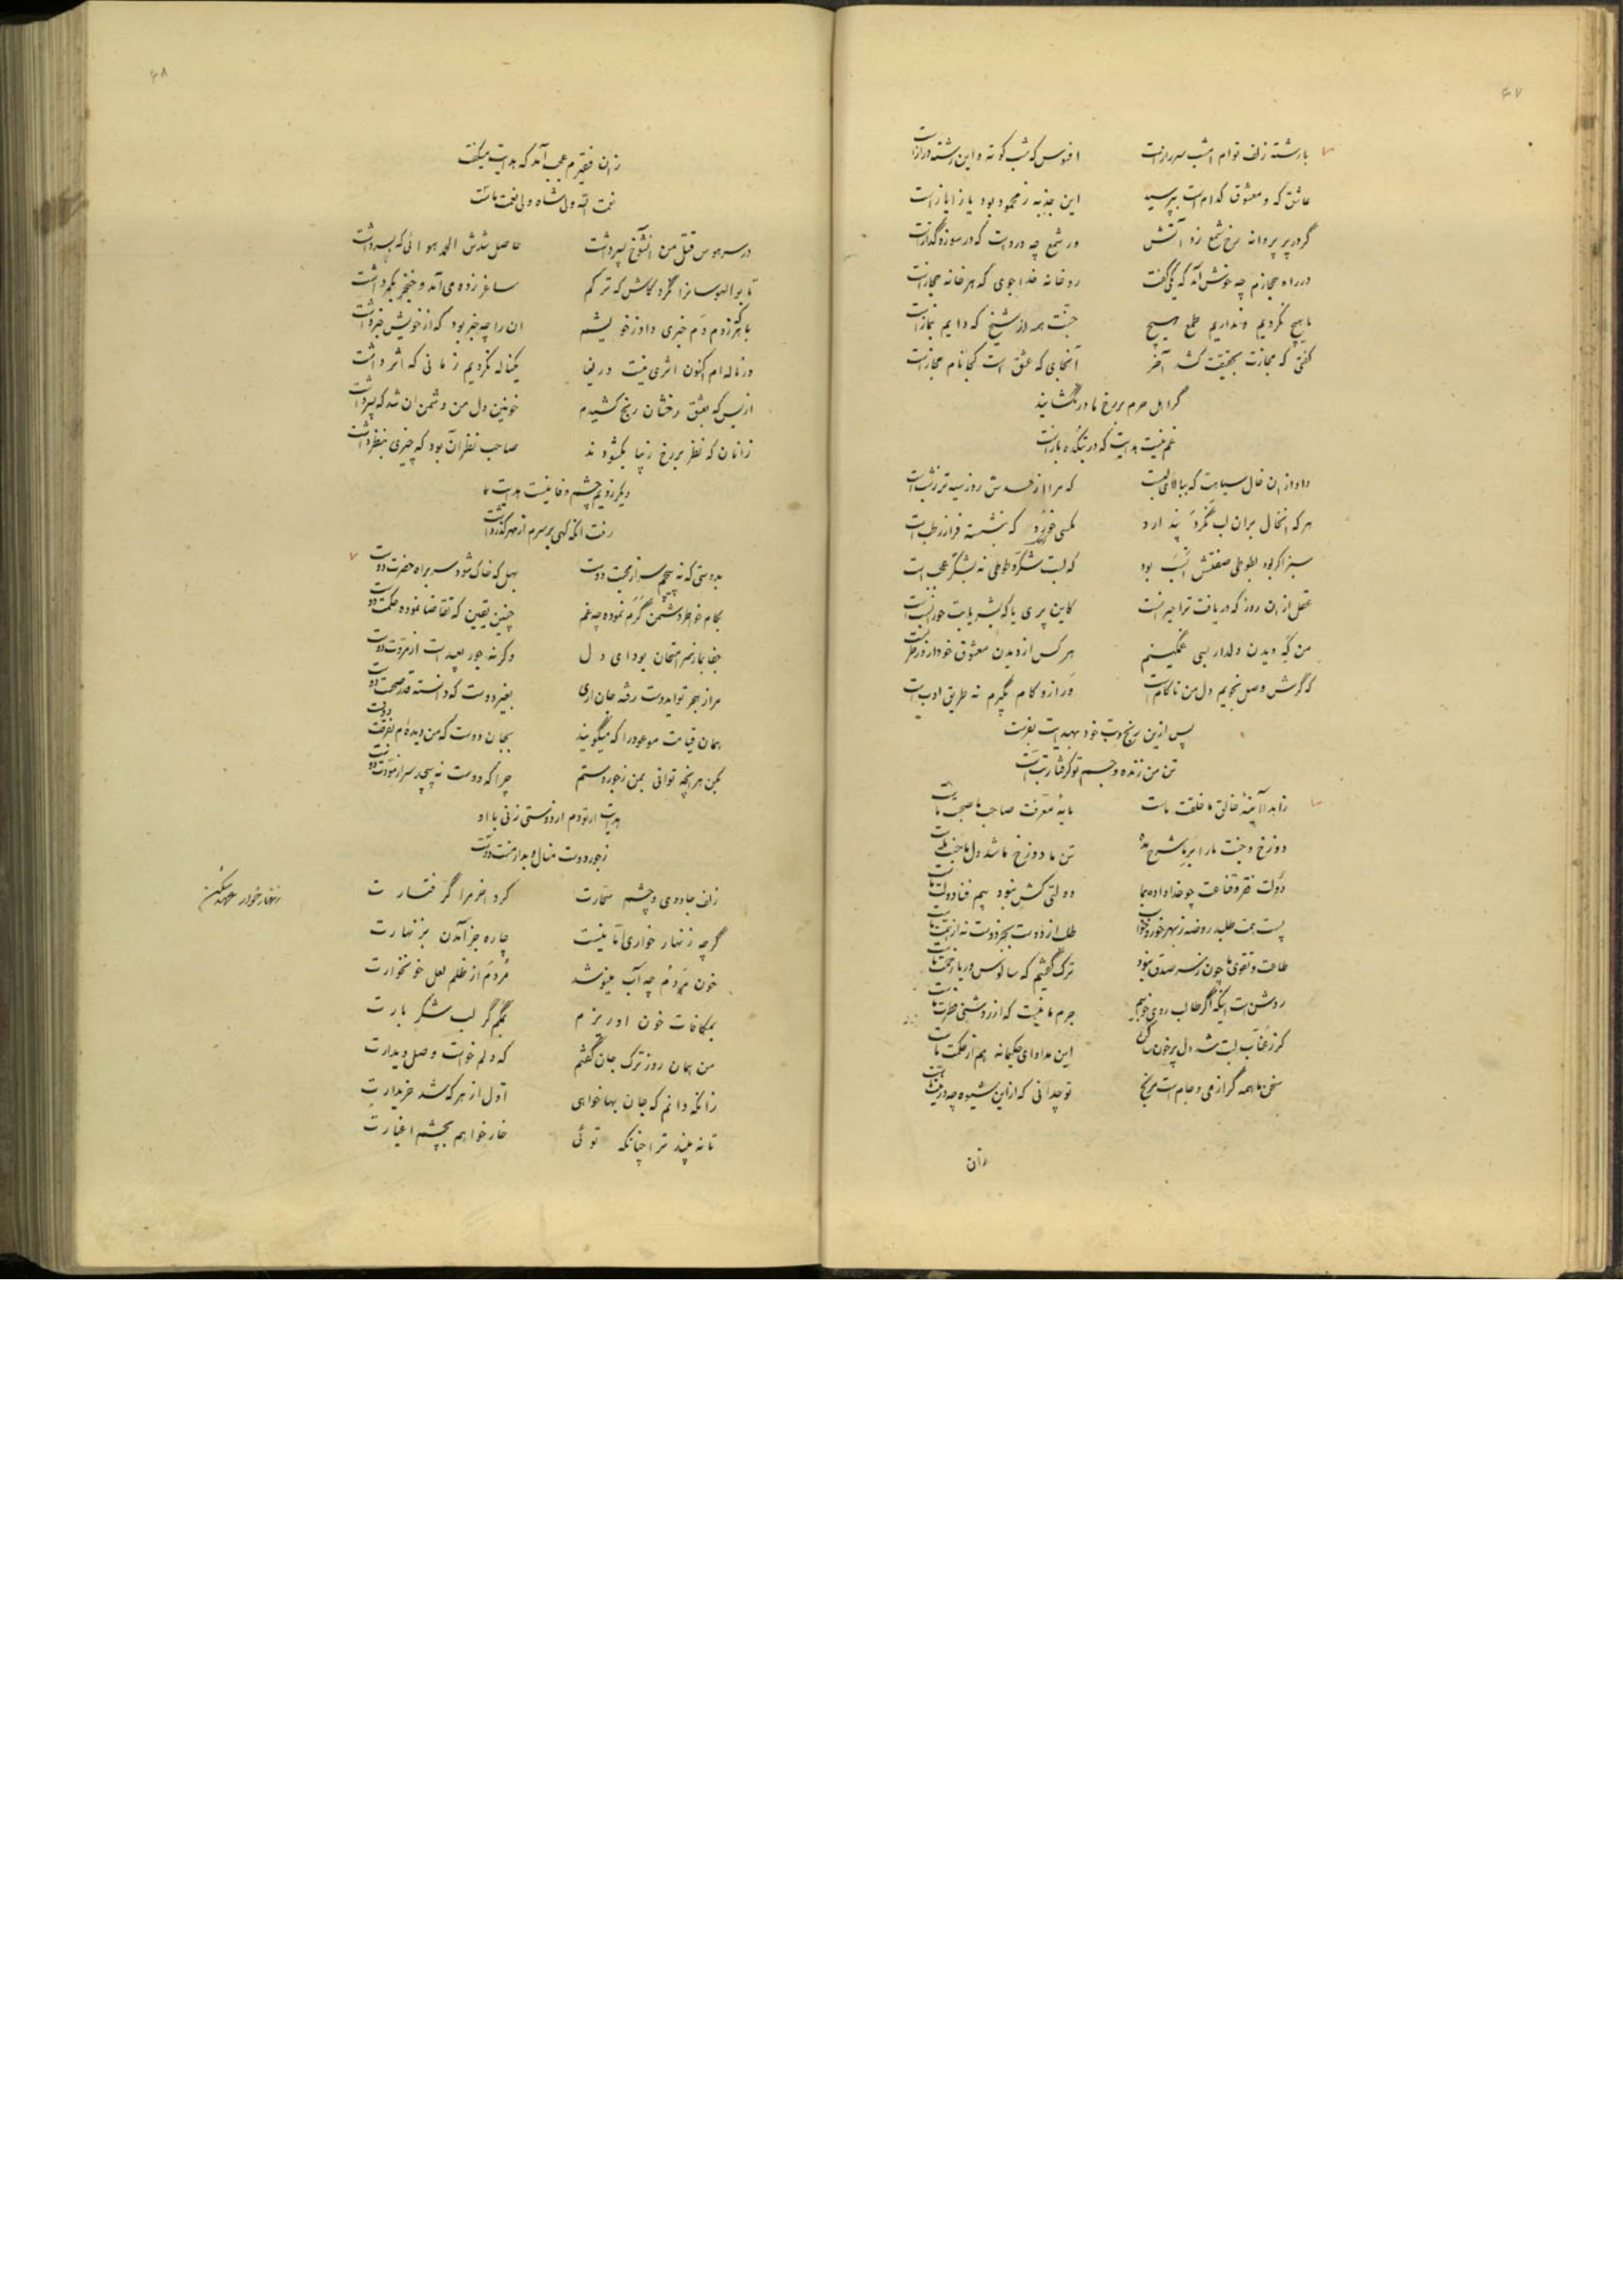 ۴۷
با رشته زلف توام امشب سر رازست افسوس که شب کوته و این رشته درازست
عاشق که و معشوق کدام است بپرسید این جذبه ز محمود بود یا ز ایازست
گر در پر پروانه رخ شمع زد آتش در شمع چه دردست که در سوز و گدازست
در راه حجازم چه خوش آمد که یکی گفت رو خانه خدا جوی که هر خانه مجازست
ما هیچ نکردیم و نداریم طمع هیچ جنت همه از شیخ که دایم بنمازست
گفتی که مجازت بحقیقت کشد آخر آنجای که عشق است کجا نام مجازست
گر اهل حرم بر رخ ما در نگشایند
غم نیست هدایت که در بتکده بازست
داد از ان خال سیاهت که ببالای لبست که مرا از حسدش روز سیه تر ز شبست
هر که انخال بران لب نگرد پندارد مگسی خورد که بنشسته فراز رطبست
سبز اگر بود بطوطی صفتش انسب بود که لبت شکر و طوطی نه بشکر عجب است
عقل از ان روز که دریافت ترا حیرانست کاین پری یا که بشر یا بت حورا نسبست
من که دیدن دلدار بسی غمگینم هر کس از دیدن معشوق خود ار در طربست
که گرش وصل نجویم دل من ناکام است ور ازو کام بگیرم نه طریق ادب است
پس ازین رنج و تب خود بهدایت بفرست
تن من زنده و جسم تو گرفتار تب است
زاهدا آینهٔ خالق ما خلقت ماست مایهٔ معرفت صاحب ما صحبت ماست
دوزخ و جنت ما را بر ما شرح مده تن ما دوزخ ما شد دل ما جنت ماست
دولت فقر و قناعت چو خدا داده بما دولتی کش نبود بیم فنا دولت ماست
پست همت طلبد روضه ز بهر خور و خواب طلب از دوست بجز دوست نه از همت ماست
طاعت و تقوی ما چون ز سر صدق نبود ترک گفتیم که سالوس و ریا زحمت ماست
روشن است اینکه اگر طالب روی خوبیم جرم ما نیست که از روشنی فطرت ماست
کز ز عناب لبت شد دل پر خون ساکن این مداوای حکیمانه هم از حکمت ماست
سخن ما همه گر از می و جام است مرنج تو چه دانی که از این شیوه چه در نیت ماست
زان
۴۸
زان فقیرم عجب آمد که هدایت میگفت
نعمت الله ولی شاه ولی نعمت ماست
در سر هوس قتل من انشوخ بسر داشت حاصل شدش الحمد هوائی که بسر داشت
تا بوالهوسانرا نگرد کاش که ترکم ساغر زده می آمد و خنجر بکمر داشت
با هر که زدم دم خبری داد ز خویشم ان را چه خبر بود که از خویش خبر داشت
در ناله ام اکنون اثری نیست دریغا یکناله نکردیم ز مانی که اثر داشت
از بس که بعشق رخشان رنج کشیدم خونین دل من دشمن ان شد که پسر داشت
زانان که نظر بر رخ زیبا بگشودند صاحب نظر آن بود که چیزی بنظر داشت
دیگر ز ویم چشم وفا نیست هدایت
رفت انکه گهی بر سرم از مهر گذر داشت
بدوستی که نه پیچم سر از محبت دوست بهل که خاک شود سر براه حضرت دوست
بکام خواطر دشمن گرم نموده چه غم چنین یقین که تقاضا نموده حکمت دوست
جفا بما ز سر امتحان بود ای دل وگرنه جور بعید است از مروت دوست
مرا ز هجر تو ایدوست رفته جان اری بغیر دوست که دانسته قدر صحبت دوست
همان قیامت موعود را که میگویند بجان دوست که من دیده ام بفرقت دوست
بکن هر انچه توانی بمن ز جور و ستم چرا که دوست نه پیچد سر از مودت دوست
هدایت ار تو دم از دوستی زنی با او
ز جور دوست منال و بدار منت دوست
زلف جادوی و چشم سحارت کرد اخر مرا گرفتارت
گرچه زنهار خواری ات نیست چاره جز آمدن بزنهارت
خون مردم چه آب مینوشد مردم از ظلم لعل خونخوارت
بمکافات خون او ریزم بمکم گر لب شکر بارت
من همان روز ترک جان گفتم که دلم خواست وصل دیدارت
زانکه دانم که جان بها خواهی اول از هر که شد خریدارت
تا نه بیند ترا چنانکه توئی خار خواهم بچشم اغیارت
زنهار خوار عهد شکن